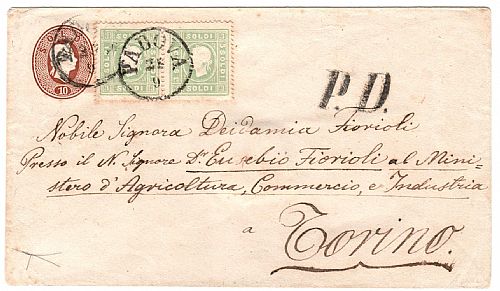 SOLDI
10
3 SOLDI 3 SOLDI
PADOVA
P.D.
Nobile Signora Deidamia Fiorioli
Presso il N. Signore Dr. Eusebio Fiorioli al Mini-
stero d'Agricoltura, Commercio, e Industria
a
Torino.